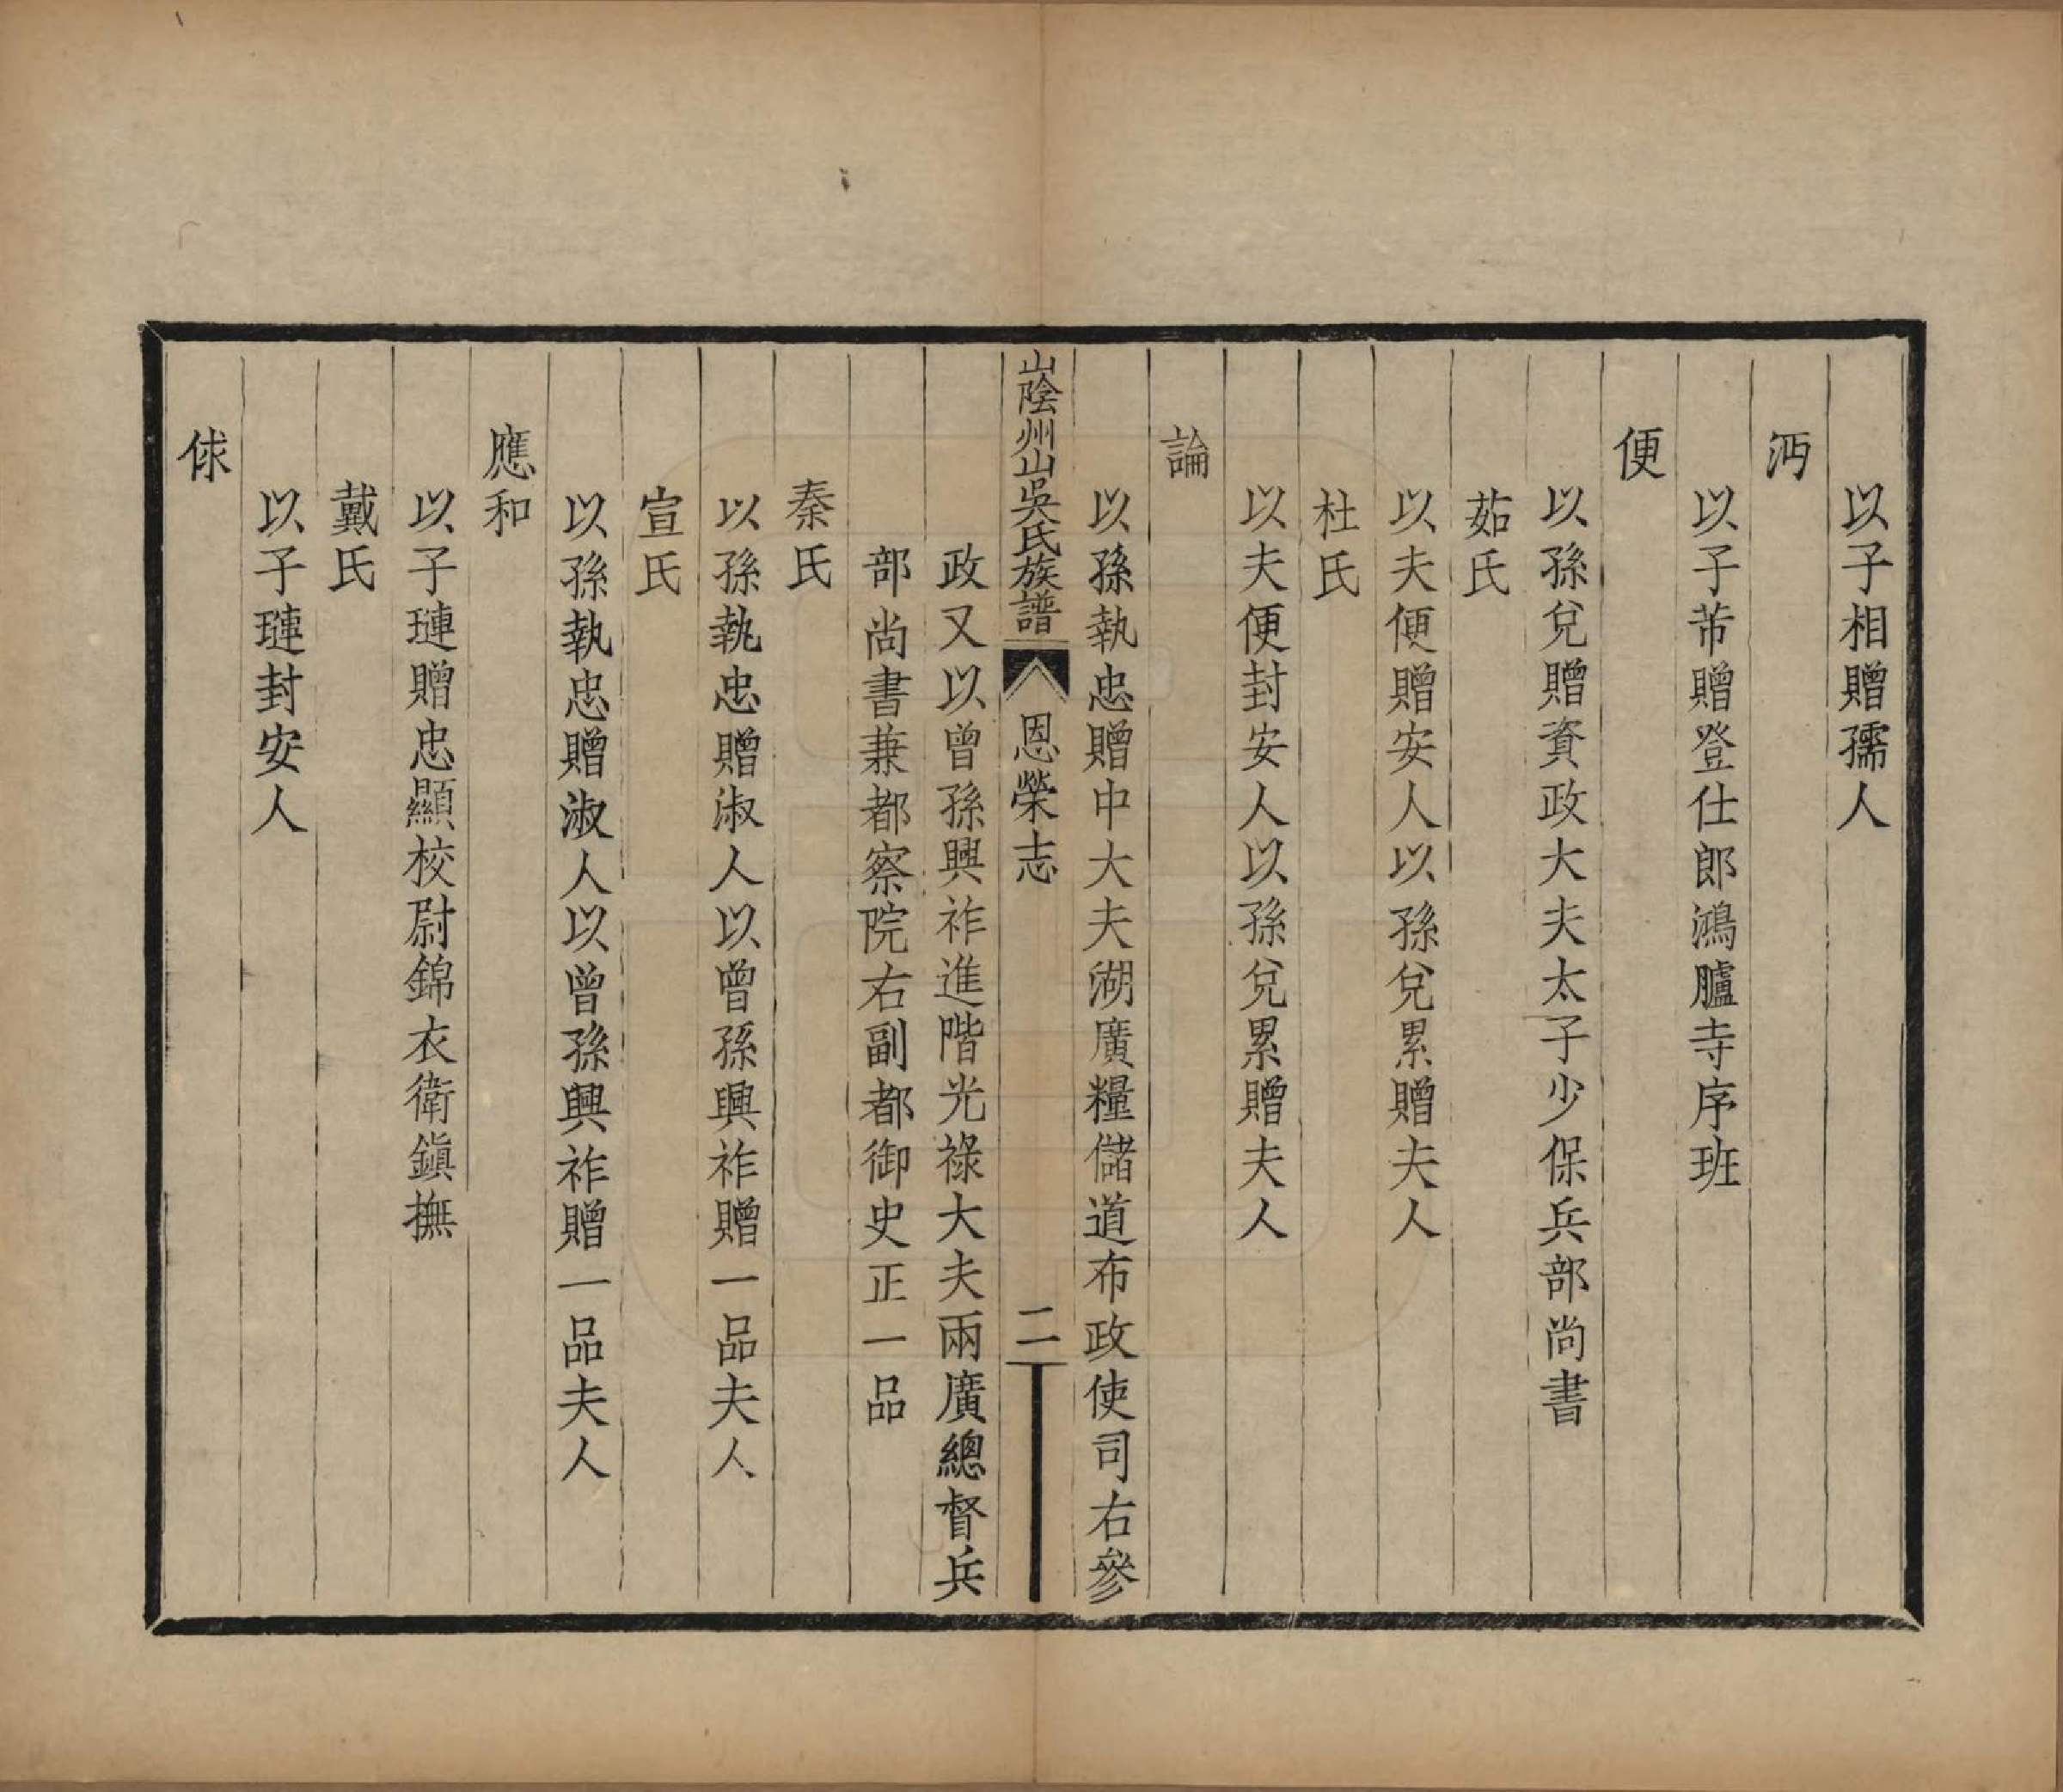 以子相贈孺人
沔
以子芾贈登仕郎鴻臚寺序班
便
以孫兌贈資政大夫太子少保兵部尚書
茹氏
以夫便贈安人以孫兌累贈夫人
杜氏
以夫便封安人以孫兌累贈夫人
論
以孫執忠贈中大夫湖廣糧儲道布政使司右參
山陰州山吳氏族譜 恩榮志 二
政又以曾孫興祚進階光祿大夫兩廣總督兵
部尚書兼都察院右副都御史正一品
秦氏
以孫執忠贈淑人以曾孫興祚贈一品夫人
宣氏
以孫執忠贈淑人以曾孫興祚贈一品夫人
應和
以子璉贈忠顯校尉錦衣衛鎮撫
戴氏
以子璉封安人
俅